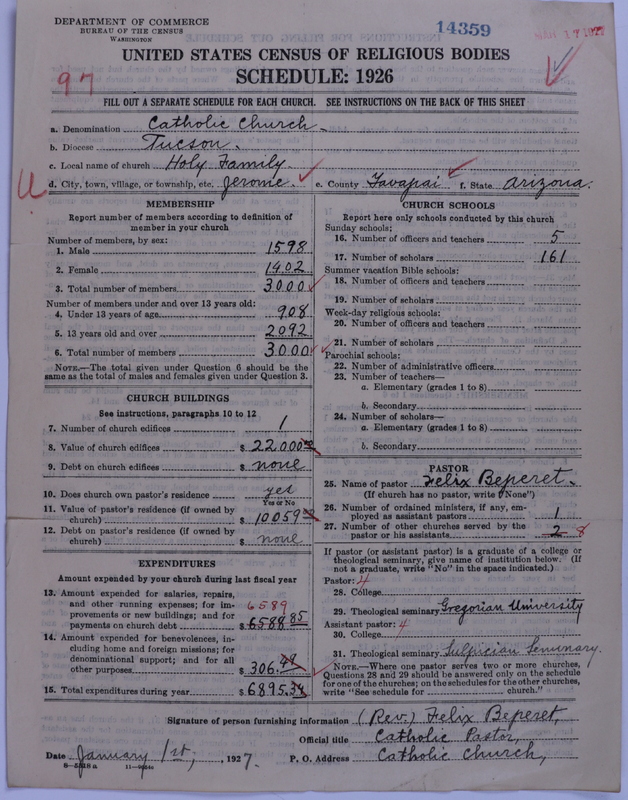 DEPARTMENT OF COMMERCE
BUREAU OF THE CENSUS
WASHINGTON
14359
UNITED STATES CENSUS OF RELIGIOUS BODIES
SCHEDULE: 1926
97
FILL OUT A SEPARATE SCHEDULE FOR EACH CHURCH. SEE INSTRUCTIONS ON THE BACK OF THIS SHEET
a. Denomination Catholic Church.
b. Diocese Tucson.
c. Local name of church Holy Family
d. City, town, village, or township, etc. Jerome. e. County Yavapai f. State Arizona.
MEMBERSHIP
Report number of members according to definition of
member in your church
Number of members, by sex:
1. Male 1598
2. Female 1402
3. Total number of members 3000
Number of members under and over 13 years old:
4. Under 13 years of age 908
5. 13 years old and over 2092
6. Total number of members 3000
NOTE.—The total given under Question 6 should be
same as the total of males and females given under Question 3.
CHURCH BUILDINGS
See instructions, paragraphs 10 to 12
7. Number of church edifices 1
8. Value of church edifices $ 22000
9. Debt on church edifices $ none
10. Does church own pastor's residence yes
Yes or No
11. Value of pastor's residence (if owned by
church) $ 10059
12. Debt on pastor's residence (if owned by
church) $ none
EXPENDITURES
Amount expended by your church during last fiscal year
13. Amount expended for salaries, repairs,
and other running expenses; for im-
provements or new buildings; and for
payments on church debt 6589 $ 6588 85
14. Amount expended for benevolences, in-
cluding home and foreign missions; for
denominational support; and for all
other purposes $ 306.
15. Total expenditures during year $ 6895.34
CHURCH SCHOOLS
Report here only schools conducted by this church
Sunday schools:
16. Number of officers and teachers 5
17. Number of scholars 161
Summer vacation Bible schools:
18. Number of officers and teachers
19. Number of scholars
Week-day religious schools:
20. Number of officers and teachers
21. Number of scholars
Parochial schools:
22. Number of administrative officers
23. Number of teachers—
a. Elementary (grades 1 to 8)
b. Secondary
24. Number of scholars—
a. Elementary (grades 1 to 8)
b. Secondary
PASTOR
25. Name of pastor Felix Beperet.
(If church has no pastor, write "None")
26. Number of ordained ministers, if any, em-
ployed as assistant pastors 1
27. Number of other churches served by the
pastor or his assistants 2 8
If pastor (or assistant pastor) is a graduate of a college or
theological seminary, give name of institution below. (If
not a graduate, write "No" in the space indicated.)
Pastor: 4
28. College
29. Theological seminary Gregorian University
Assistant pastor: 4
30. College
31. Theological seminary Sulpician Seminary.
NOTE.—Where one pastor serves two or more churches,
Questions 28 and 29 should be answered only on the schedule
for one of the churches; on the schedules for the other churches,
write "See schedule for church."
Signature of person furnishing information (Rev.) Felix Beperet,
Official title Catholic Pastor,
Date January 1st, 1927. P. O. Address Catholic Church,